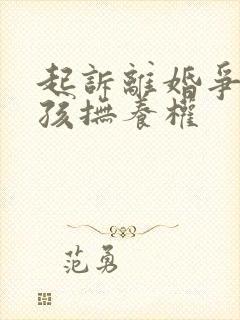 起訴離婚爭
孩撫養權
范勇